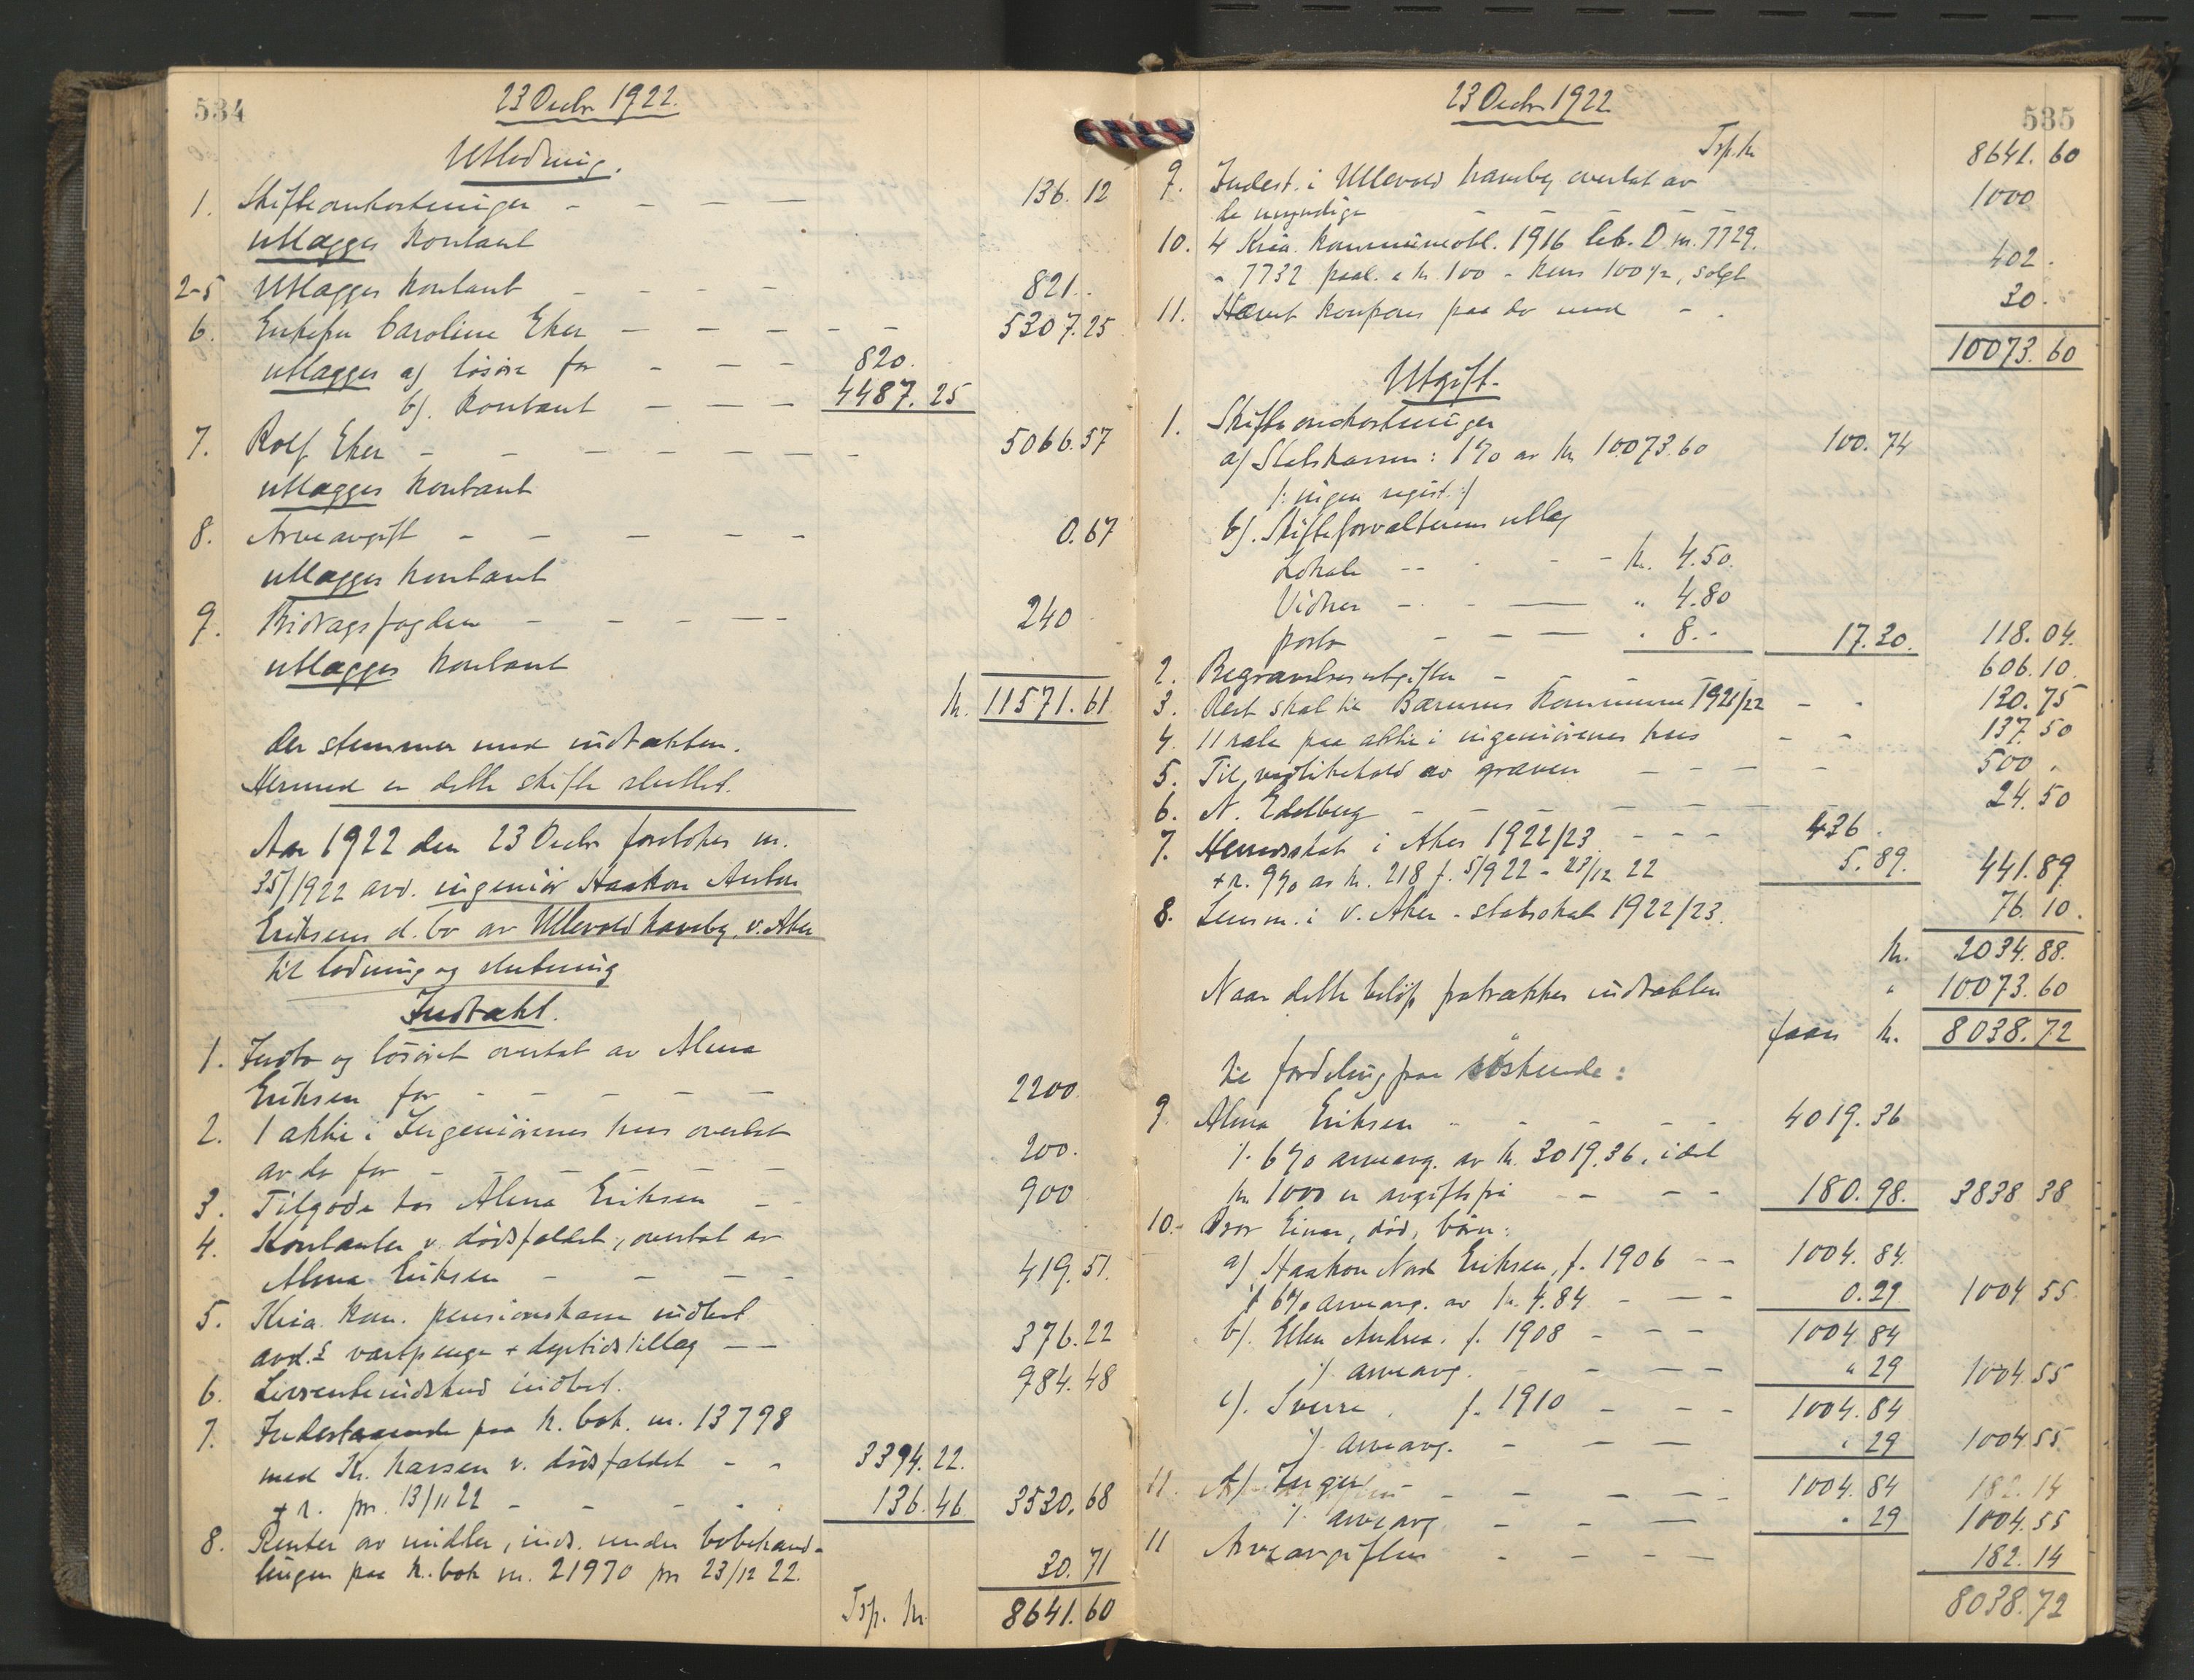 534
23 Decbr 1922.
Utlodning.
1. Skifteomkostninger - - - - 136.12
utlægges kontant
2-5 Utlægges kontant - - - - 821.
6. Enkefru Caroline Eker - - - - - 5307.25
utlægges a) løsøre for - - - 820.
b). kontant - - - 4487.25
7. Rolf Eker - - - - - - - 5066.57
utlægges kontant
8. Arveavgift - - - - - 0.67
utlægges kontant
9. Bidragsfogden - - - - - 240
utlægges kontant
kr. 11571.61
der stemmer med indtækten.
Hermed er dette skifte sluttet.
Aar 1922 den 23 Decbr foretokes nr.
35/1922 avd. ingeniør Haakon Anton
Eriksens d. bo av Ullevold haveby, v. Aker
til lodning og slutning
Indtækt.
1. Indbo og løsøret overtat av Alma
Eriksen for - - - - - 2200.
2. 1 aktie i Ingeniørenes hus overtat
av do for - - - - - 200.
3. Tilgode hos Alma Eriksen - - 900
4. Kontanter v. dødsfaldet, overtat av
Alma Eriksen - - - - 419.51.
5. Kria. kom. pensionskasse indbet
avd.s vartpenge + dyrtidstillæg - - 376.22
6. Livrenteindskud indbet. 984.48
7. Indestaaende paa k. bok. nr. 13798
med Kr. kassen v. dødsfaldet - - 3394.22.
+ r. pr. 13/11 22 - - - - 136.46 3530.68
8. Renter av midler, inds. under bobehand-
lingen paa k. bok nr. 21970 pr 23/12 22. 30.71
Trsp. kr. 8641.60
535
23 Decbr 1922
Trsp. kr 8641.60
9. Indest. i Ullevold haveby overtat av
de umyndige - - - - 1000
10. 4 Kria. kommuneobl. 1916 litr. D nr. 7729.
- 7732 paal. a kr. 100 - kurs 100 1/2, solgt 402.
11. Hævet kupons paa do med - - 30.
10073.60
Utgift.
1. Skifteomkostninger
a) Statskassen: 1% av kr 10073.60 100.74
/: ingen regist. :/
b). Skifteforvalterens utlæg
Lokale - - - - kr. 4.50.
Vidner - - - " 4.80
porto - - - " 8.- 17.30. 118.04.
2. Begravelsesutgifter - - - 606.10.
3. Rest skat til Bærums kommune 1921/22 - - 130.75
4. 11 rate paa aktie i ingeniørenes hus - - 137.50
5. Til vedlikehold av graven - - - - 500.
6. N. Edelberg - - - - - - 24.50
7. Herredsskat i Aker 1922/23. - - - 436.
+ r. 9% av kr. 218 f. 5/9 22 - 23/12 22 5.89. 441.89
8. Lensm. i v. Aker - statsskat 1922/23. 76.10.
kr. 2034.88.
Naar dette beløp fratrækkes indtækten " 10073.60
faaes kr. 8038.72
til fordeling paa søskende:
9. Alma Eriksen - - - - - 4019.36
÷ 6% arveavg. av kr. 3019.36, idet
kr 1000 er avgiftsfri - - - 180.98. 3838 38
10. Bror Einar, død, børn:
a) Haakon Nord Eriksen, f. 1906 - - 1004.84.
÷ 6% arveavg. av kr. 4.84 - - - 0.29 1004 55.
b). Ellen Andrea. f. 1908 - - - 1004.84
÷ arveavg. - - - " 29 1004.55
c). Sverre. f. 1910 - - - 1004.84
÷ arveavg. - - - " 29 1004 55
11. d). Inger - - - - - 1004.84 182.14
÷ arveavg. - - - " 29 1004.55
11 Arveavgiften - - - - 182.14
8038.72